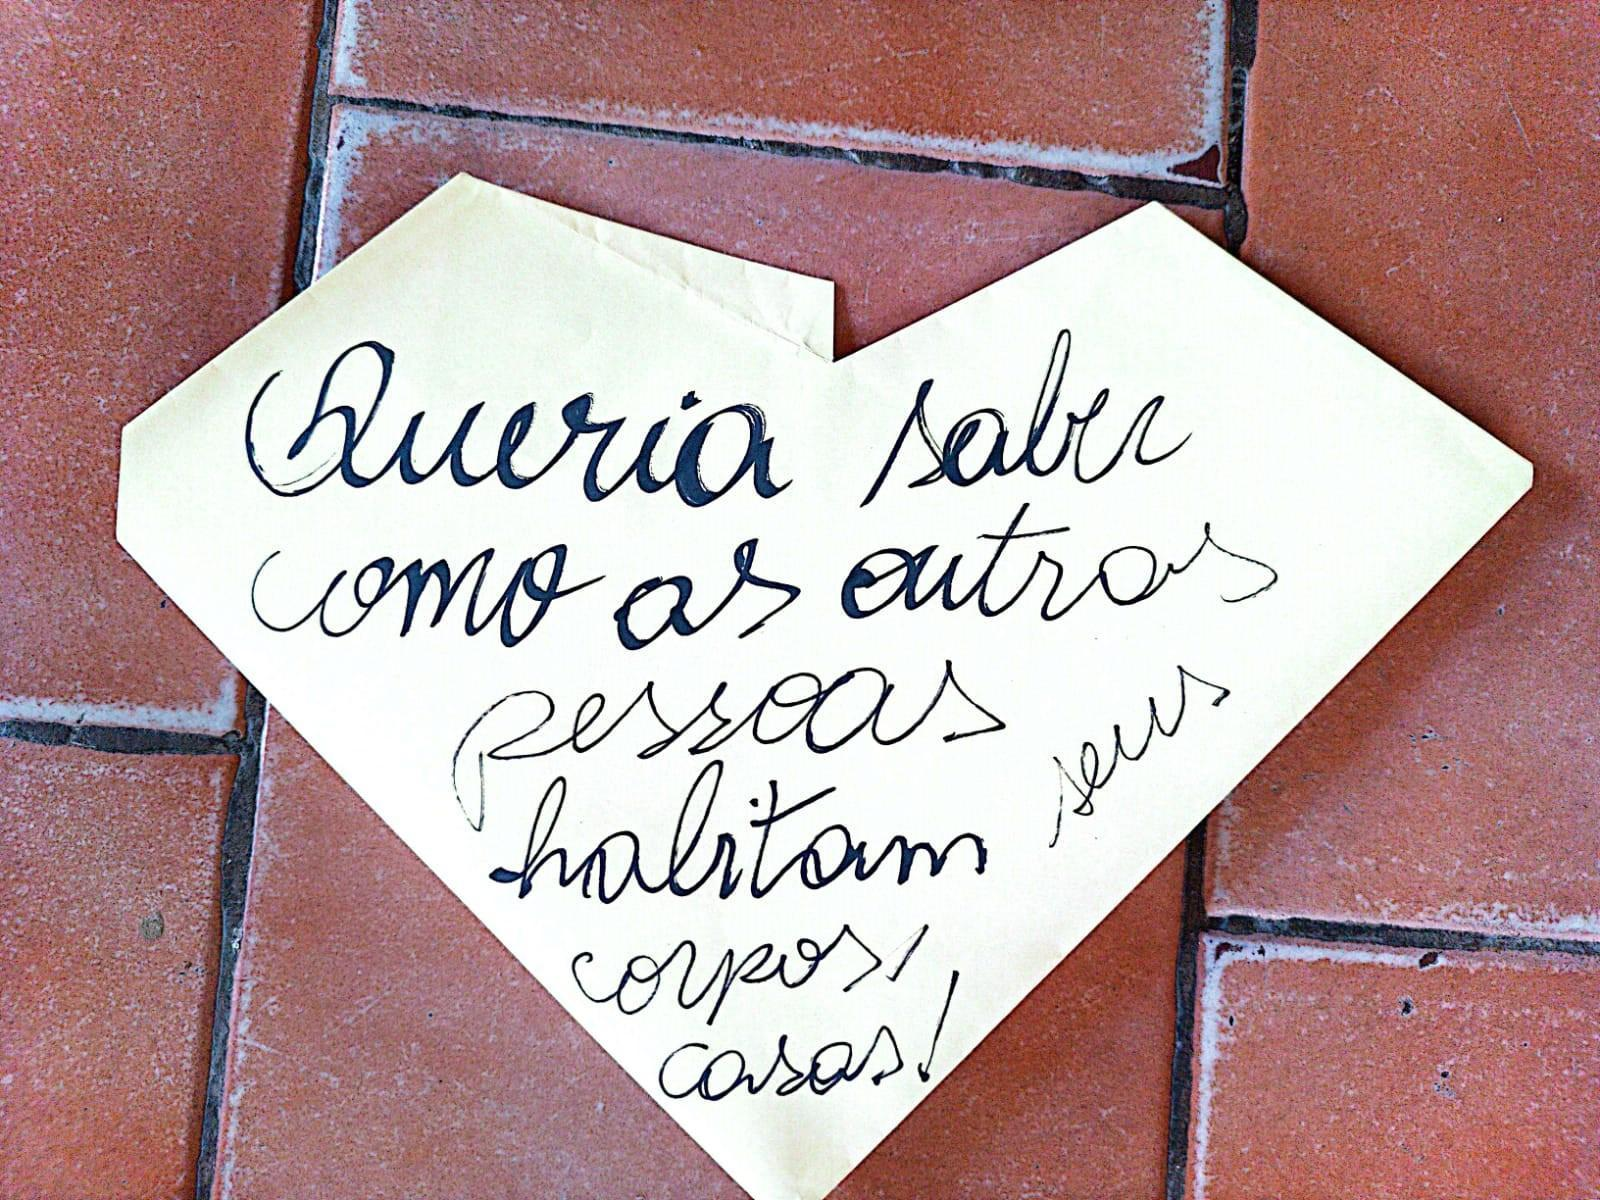 Queria saber
como as outras
pessoas
habitam seus
corpos/
casas!